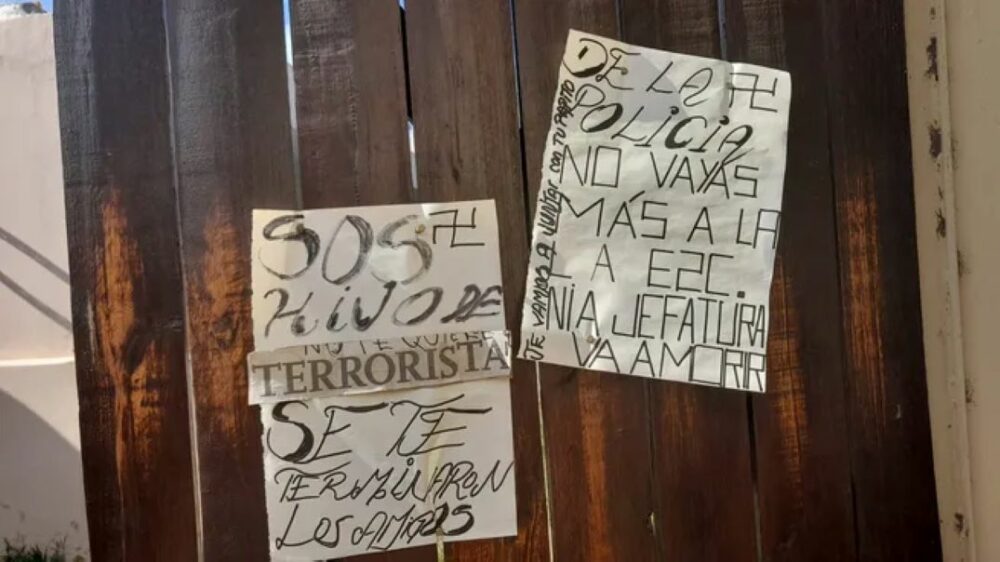 SOS
HIJO DE
NO TE QUIERE
TERRORISTA
SE TE
TERMINARON
LOS AMIGOS
DE LA
POLICIA
NO VAYAS
MÁS A LA
A EZC.
NI A JEFATURA
VA A MORIR
TE VAMOS A JUNTAR CON TU PAPITO